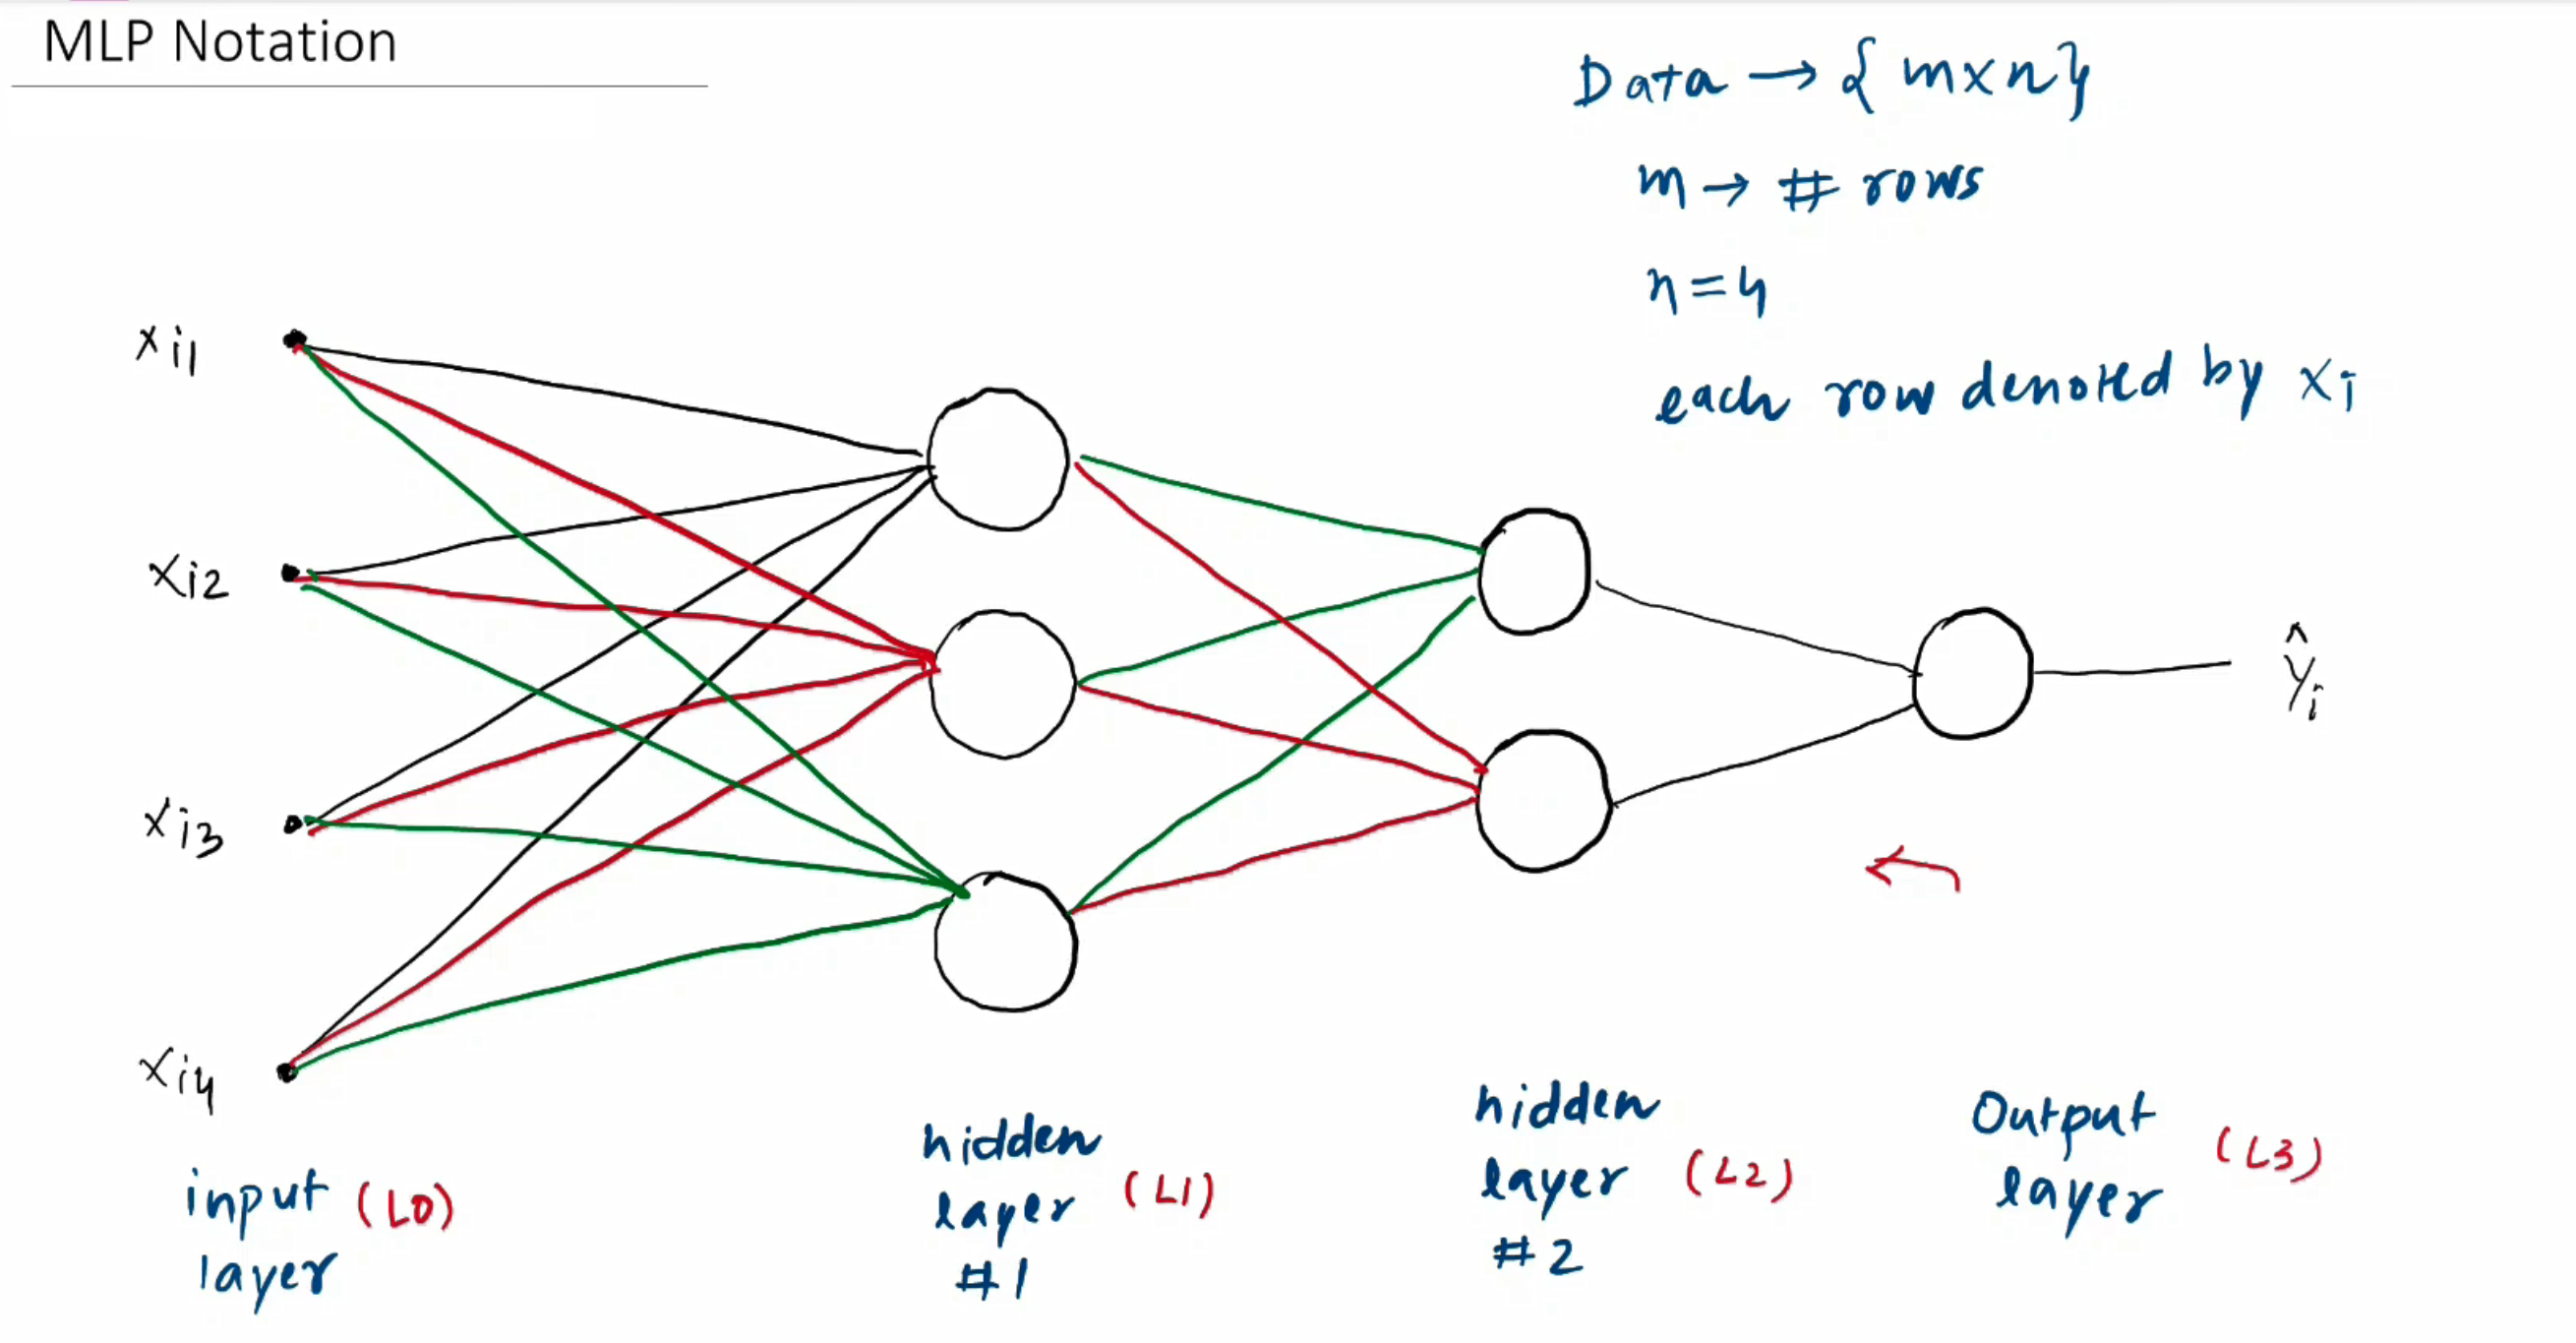 MLP Notation
Data → { m x n }
m → # rows
n = 4
each row denoted by xi
xi1
xi2
xi3
xi4
ŷi
input (L0)
layer
hidden
layer (L1)
#1
hidden
layer (L2)
#2
Output
layer (L3)